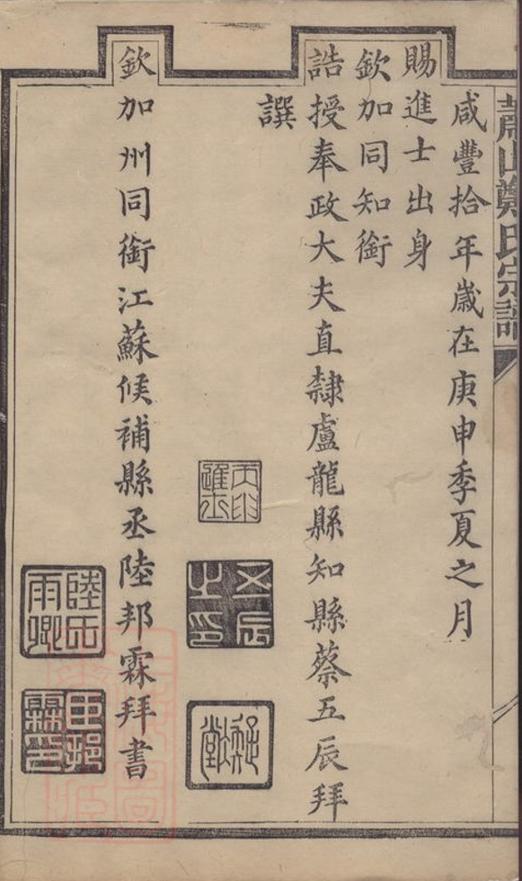 蕭山鄭氏宗譜
咸豐拾年歲在庚申季夏之月
賜進士出身
欽加同知銜
誥授奉政大夫直隸盧龍縣知縣蔡五辰拜
譔
五辰之印
欽加州同銜江蘇候補縣丞陸邦霖拜書
雨卿